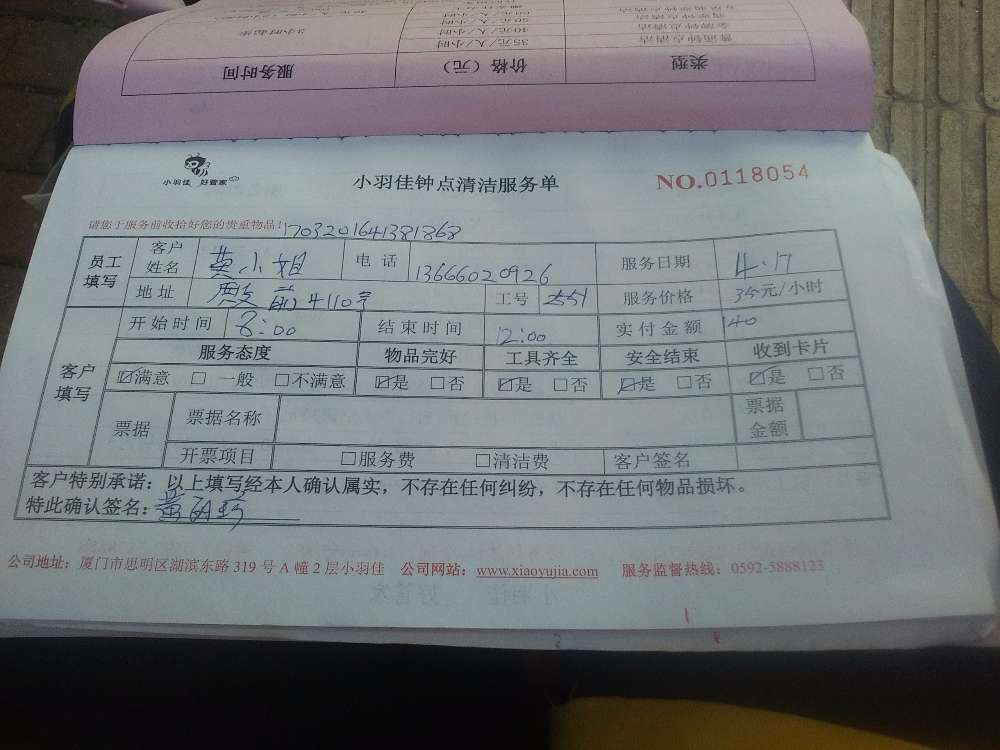 类型 价格（元） 服务时间
普通钟点清洁 35元/人/小时
40元/人/小时
50元/人/小时
小羽佳 好管家
小羽佳钟点清洁服务单
NO.0118054
请您于服务前收拾好您的贵重物品！1703201641381868
员工填写 客户姓名 黄小姐 电话 13666020926 服务日期 4.17
地址 前4110号 工号 服务价格 35元/小时
客户填写 开始时间 8:00 结束时间 12:00 实付金额 140
服务态度 物品完好 工具齐全 安全结束 收到卡片
☑满意 □一般 □不满意 ☑是 □否 ☑是 □否 ☑是 □否 ☑是 □否
票据 票据名称 票据金额
开票项目 □服务费 □清洁费 客户签名
客户特别承诺：以上填写经本人确认属实，不存在任何纠纷，不存在任何物品损坏。
特此确认签名：黄
公司地址：厦门市思明区湖滨东路 319 号 A 幢 2 层小羽佳 公司网站：www.xiaoyujia.com 服务监督热线：0592-5888123